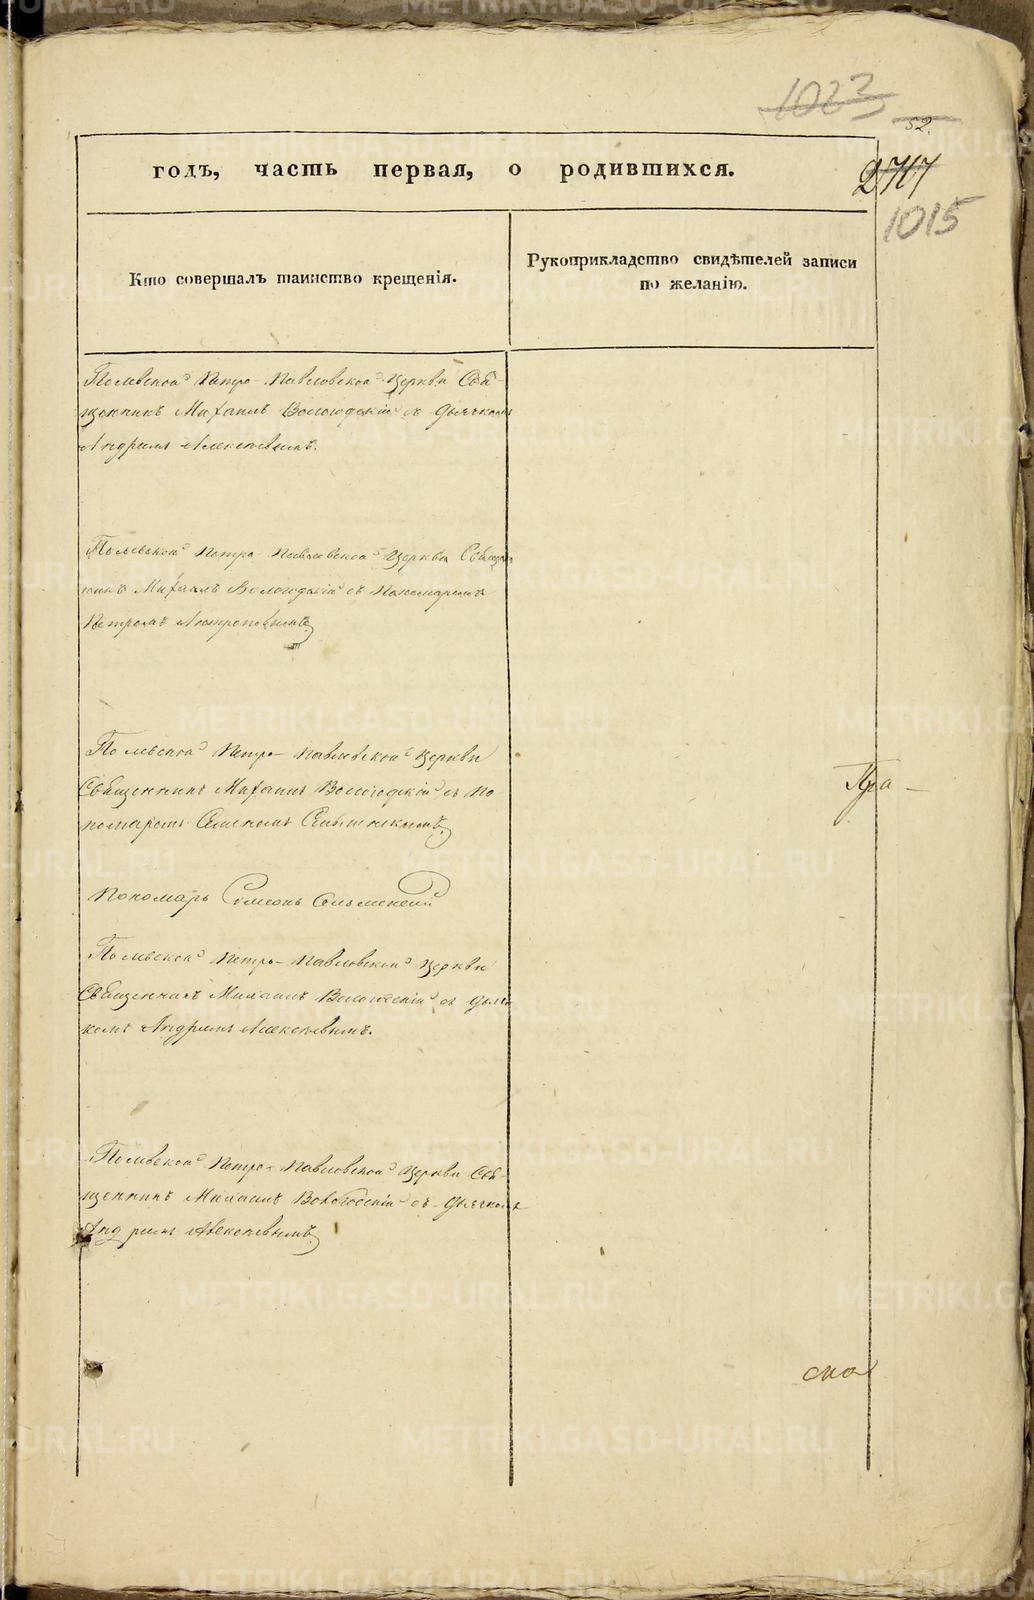 1023
52.
2717
1015
годъ, часть первая, о родившихся.
Кто совершалъ таинство крещенія.
Рукоприкладство свидѣтелей записи
по желанію.
Полевской Петро-Павловской Церкви Свя-
щенникъ Михаилъ Вологодскій съ дьячкомъ
Андреемъ Алексѣевымъ.
Полевской Петро-Павловской Церкви Священ
никъ Михаилъ Вологодскій съ Пономаремъ
Петромъ
Полевской Петро-Павловской Церкви
Священникъ Михаилъ Вологодскій съ По
номаремъ
Пономарь Симеонъ
Полевской Петро-Павловской Церкви
Священникъ Михаилъ Вологодскій съ дьяч
комъ Андреемъ Алексѣевымъ.
Полевской Петро-Павловской Церкви Свя-
щенникъ Михаилъ Вологодскій съ дьячкомъ
Андреемъ Алексѣевымъ.
METRIKI.GASO-URAL.RU